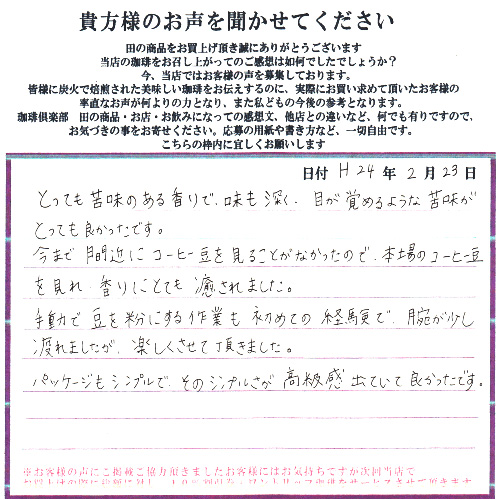 貴方様のお声を聞かせてください
田の商品をお買上げ頂き誠にありがとうございます
当店の珈琲をお召し上がってのご感想は如何でしたでしょうか?
今、当店ではお客様の声を募集しております。
皆様に炭火で焙煎された美味しい珈琲をお伝えするのに、実際にお買い求めて頂いたお客様の
率直なお声が何よりの力となり、また私どもの今後の参考となります。
珈琲倶楽部 田の商品・お店・お飲みになっての感想文、他店との違いなど、何でも有りですので、
お気づきの事をお寄せください。応募の用紙や書き方など、一切自由です。
こちらの枠内に宜しくお願いします
日付 H24年2月23日
とっても苦味のある香りで、味も深く、目が覚めるような苦味が
とっても良かったです。
今まで間近にコーヒー豆を見ることがなかったので、本場のコーヒー豆
を見れ、香りにとても癒されました。
手動で豆を粉にする作業も初めての経験で、腕が少し
疲れましたが、楽しくさせて頂きました。
パッケージもシンプルで、そのシンプルさが高級感出ていて良かったです。
※お客様の声にご掲載ご協力頂きましたお客様にはお気持ちですが次回当店で